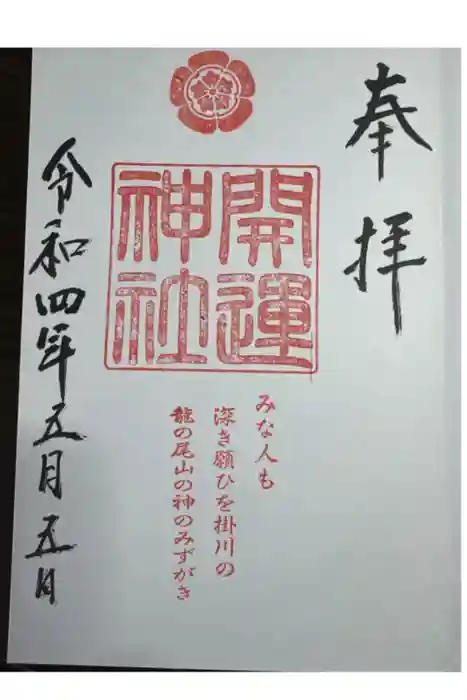 奉拝
開運
神社
みな人も
深き願ひを掛川の
龍の尾山の神のみずがき
令和四年五月五日